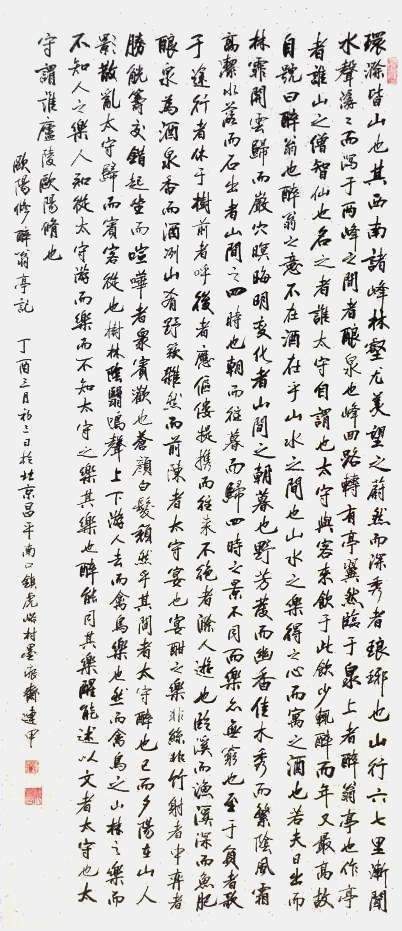 環滁皆山也其西南諸峰林壑尤美望之蔚然而深秀者琅琊也山行六七里漸聞
水聲潺潺而瀉于兩峰之間者釀泉也峰回路轉有亭翼然臨于泉上者醉翁亭也作亭
者誰山之僧智仙也名之者誰太守自謂也太守與客來飲于此飲少輒醉而年又最高故
自號曰醉翁也醉翁之意不在酒在乎山水之間也山水之樂得之心而寓之酒也若夫日出而
林霏開雲歸而巖穴暝晦明變化者山間之朝暮也野芳發而幽香佳木秀而繁陰風霜
高潔水落而石出者山間之四時也朝而往暮而歸四時之景不同而樂亦無窮也至于負者歌
于途行者休于樹前者呼後者應傴僂提携而往來不絕者滁人遊也臨溪而漁溪深而魚肥
釀泉為酒泉香而酒冽山肴野蔌雜然而前陳者太守宴也宴酣之樂非絲非竹射者中弈者
勝觥籌交錯起坐而喧嘩者眾賓歡也蒼顏白髮頹然乎其間者太守醉也已而夕陽在山人
影散亂太守歸而賓客從也樹林陰翳鳴聲上下游人去而禽鳥樂也然而禽鳥之山林之樂而
不知人之樂人知從太守游而樂而不知太守之樂其樂也醉能同其樂醒能述以文者太守也太
守謂誰廬陵歐陽脩也
歐陽修醉翁亭記 丁酉三月初二日於北京昌平南口鎮虎峪村墨齋建甲